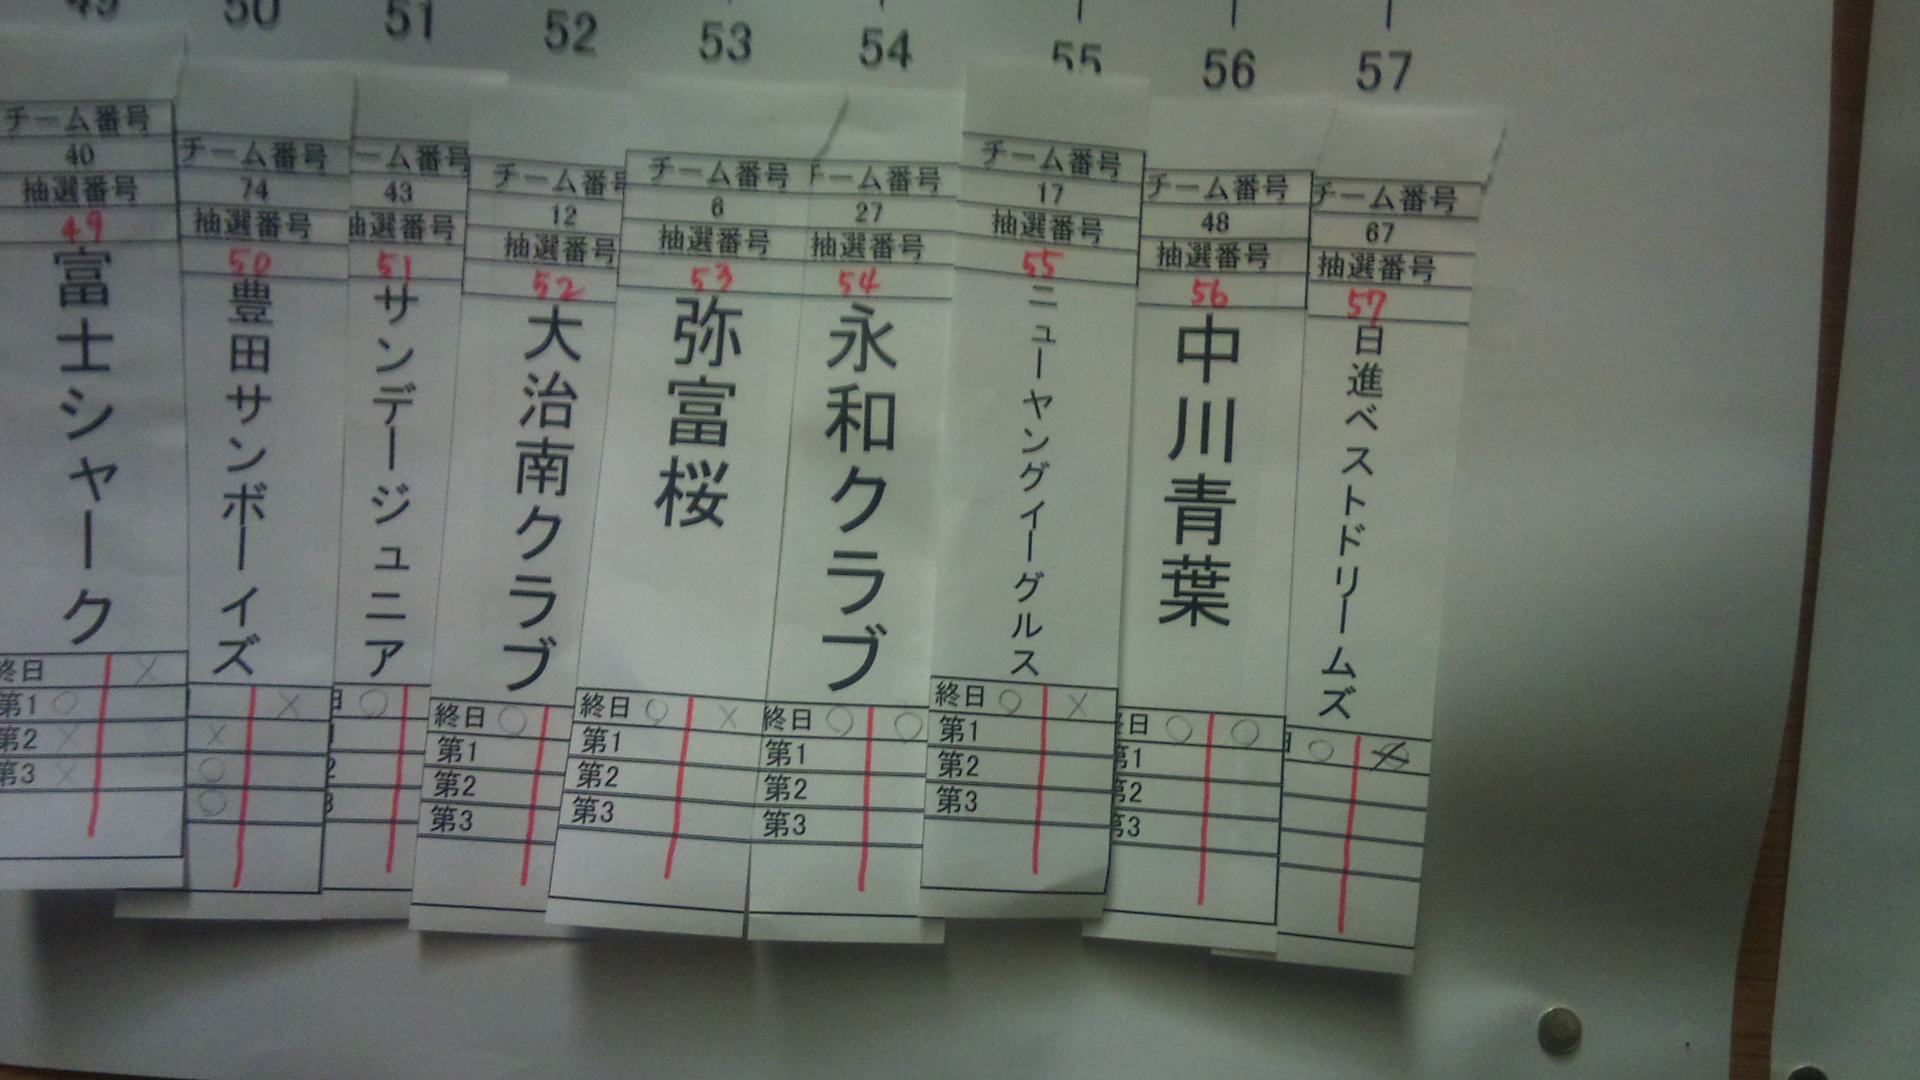 49
50
51
52
53
54
55
56
57
チーム番号
40
抽選番号
49
富士シャーク
終日 ×
第1 ○
第2 ×
第3 ×
チーム番号
74
抽選番号
50
豊田サンボーイズ
×
×
○
○
ーム番号
43
抽選番号
51
サンデージュニア
日 ○
チーム番号
12
抽選番号
52
大治南クラブ
終日 ○
第1
第2
第3
チーム番号
6
抽選番号
53
弥富桜
終日 ○ ×
第1
第2
第3
チーム番号
27
抽選番号
54
永和クラブ
終日 ○ ○
第1
第2
第3
チーム番号
17
抽選番号
55
ニューヤングイーグルス
終日 ○ ×
第1
第2
第3
チーム番号
48
抽選番号
56
中川青葉
終日 ○ ○
第1
第2
第3
チーム番号
67
抽選番号
57
日進ベストドリームズ
○